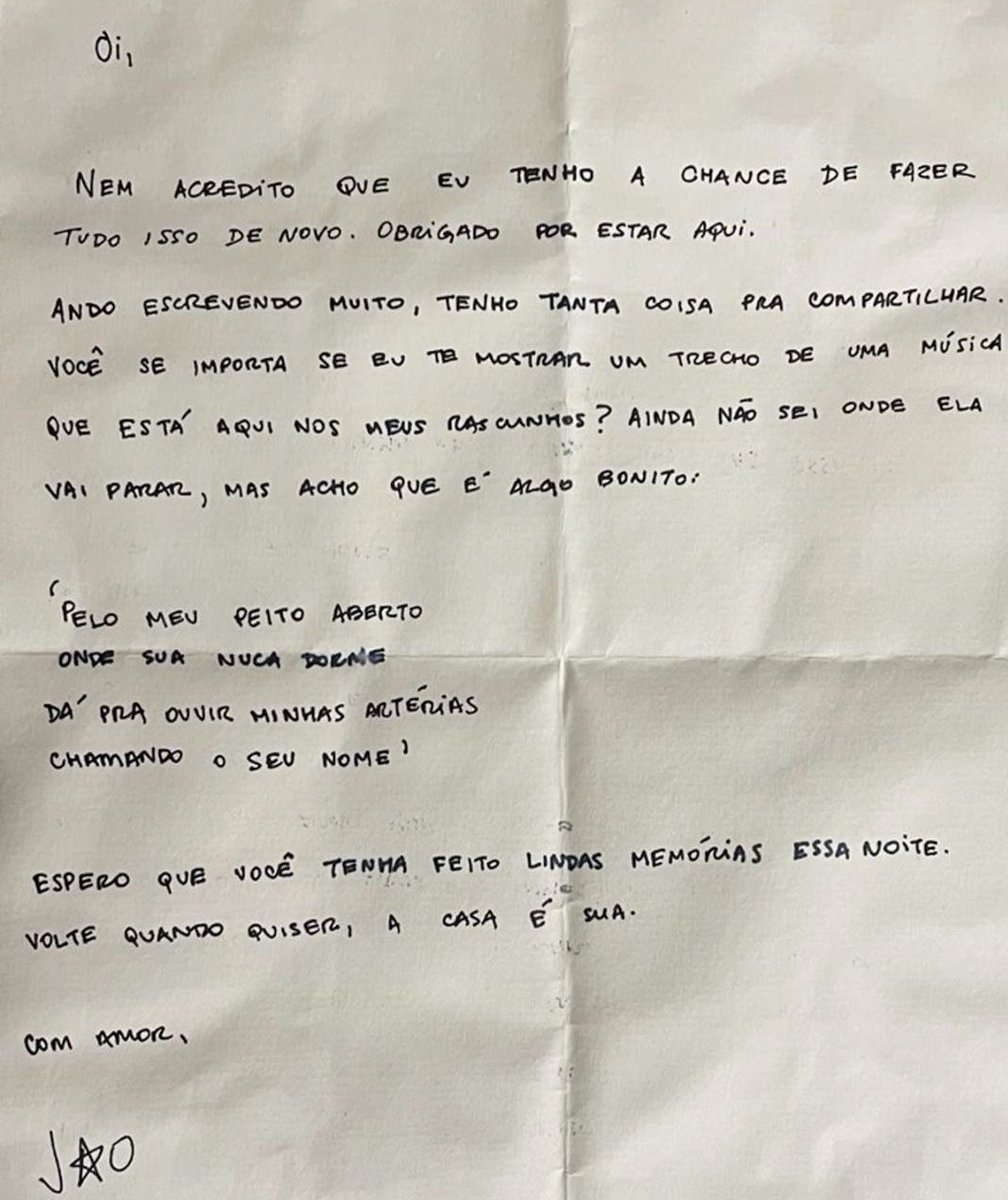 Oi,
NEM ACREDITO QUE EU TENHO A CHANCE DE FAZER
TUDO ISSO DE NOVO. OBRIGADO POR ESTAR AQUI.
ANDO ESCREVENDO MUITO, TENHO TANTA COISA PRA COMPARTILHAR.
VOCÊ SE IMPORTA SE EU TE MOSTRAR UM TRECHO DE UMA MÚSICA
QUE ESTÁ AQUI NOS MEUS RASCUNHOS? AINDA NÃO SEI ONDE ELA
VAI PARAR, MAS ACHO QUE É ALGO BONITO:
'PELO MEU PEITO ABERTO
ONDE SUA NUCA DORME
DÁ PRA OUVIR MINHAS ARTÉRIAS
CHAMANDO O SEU NOME'
ESPERO QUE VOCÊ TENHA FEITO LINDAS MEMÓRIAS ESSA NOITE.
VOLTE QUANDO QUISER, A CASA É SUA.
COM AMOR,
J☆O